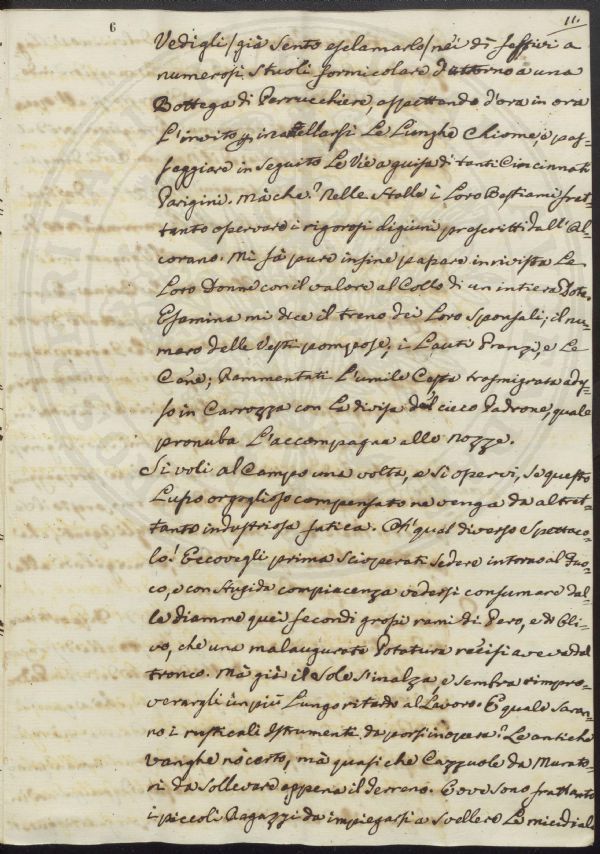 6
111.
Vedigli /già sento esclamarlo/ nei dì festivi a
numerosi Stuoli formicolare d'attorno a una
Bottega di Perrucchiere, aspettando d'ora in ora
L'invito p inanellarsi Le Lunghe Chiome, e pas=
seggiare in seguito Le Vie a guisa di tanti Cincinnati
Parigini. Mà che? Nelle Stalle i Loro Bestiami frat=
tanto osservare i rigorosi digiuni prescritti dall'Al=
corano. Mi fà pure infine passare in rivista Le
Loro Donne con il valore al Collo di un intiera Dote.
Esamina mi dice il treno dei Loro Sponsali; il nu=
mero delle Vesti pompose; i Lauti Pranzi, e Le
Cene; Rammentati L'umile Cesta trasmigrata ades=
so in Carrozza con La divisa del cieco Padrone, quale
pronuba L'accompagna alle nozze.
Si voli al Campo una volta, e si osservi, se questo
Lusso orgoglioso compensato ne venga da altret=
tanto industriosa fatica. Oh! qual diverso Spettaco=
lo! Eccovegli prima scioperati sedere intorno al Fuo=
co, e con stupida compiacenza vedersi consumare dal=
le fiamme quei fecondi grossi rami di Pero, e di Oli=
vo, che una malaugurata Potatura recisi aveva dal
tronco. Mà già il Sole s'inalza, e sembra rimpro=
verargli un più Lungo ritardo al Lavoro. E quale saran=
no i rusticali Istrumenti da porsi in opera? Le antiche
vanghe nò certo, mà quasi che Cazzuole da Murato=
ri da sollevare appena il terreno. E ove sono frattanto
i piccoli Ragazzi da impiegarsi a svellere Le micidiali